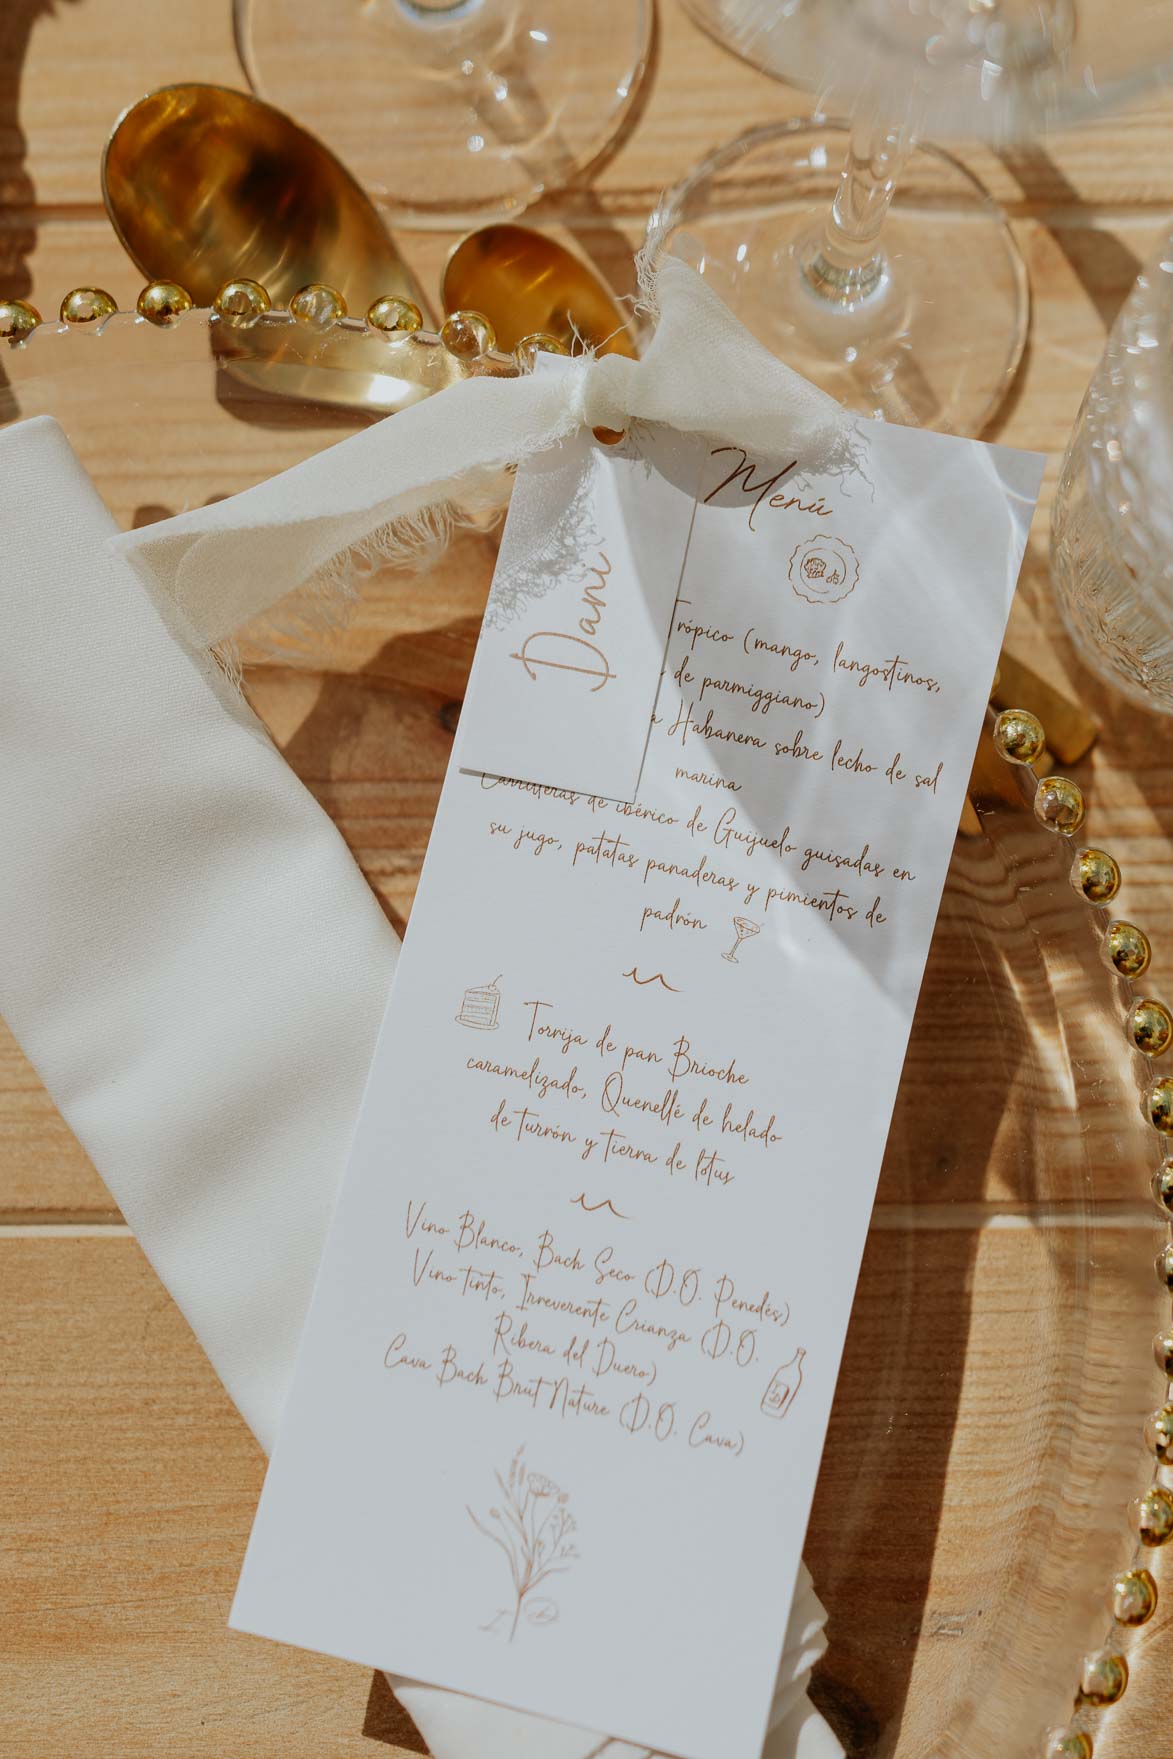 Menú
Dani
Trópico (mango, langostinos,
de parmiggiano)
a Habanera sobre lecho de sal
marina
Carrilleras de ibérico de Guijuelo guisadas en
su jugo, patatas panaderas y pimientos de
padrón
Torrija de pan Brioche
caramelizado, Quenellé de helado
de turrón y tierra de lotus
Vino Blanco, Bach Seco (D.O. Penedés)
Vino tinto, Irreverente Crianza (D.O.
Ribera del Duero)
Cava Bach Brut Nature (D.O. Cava)